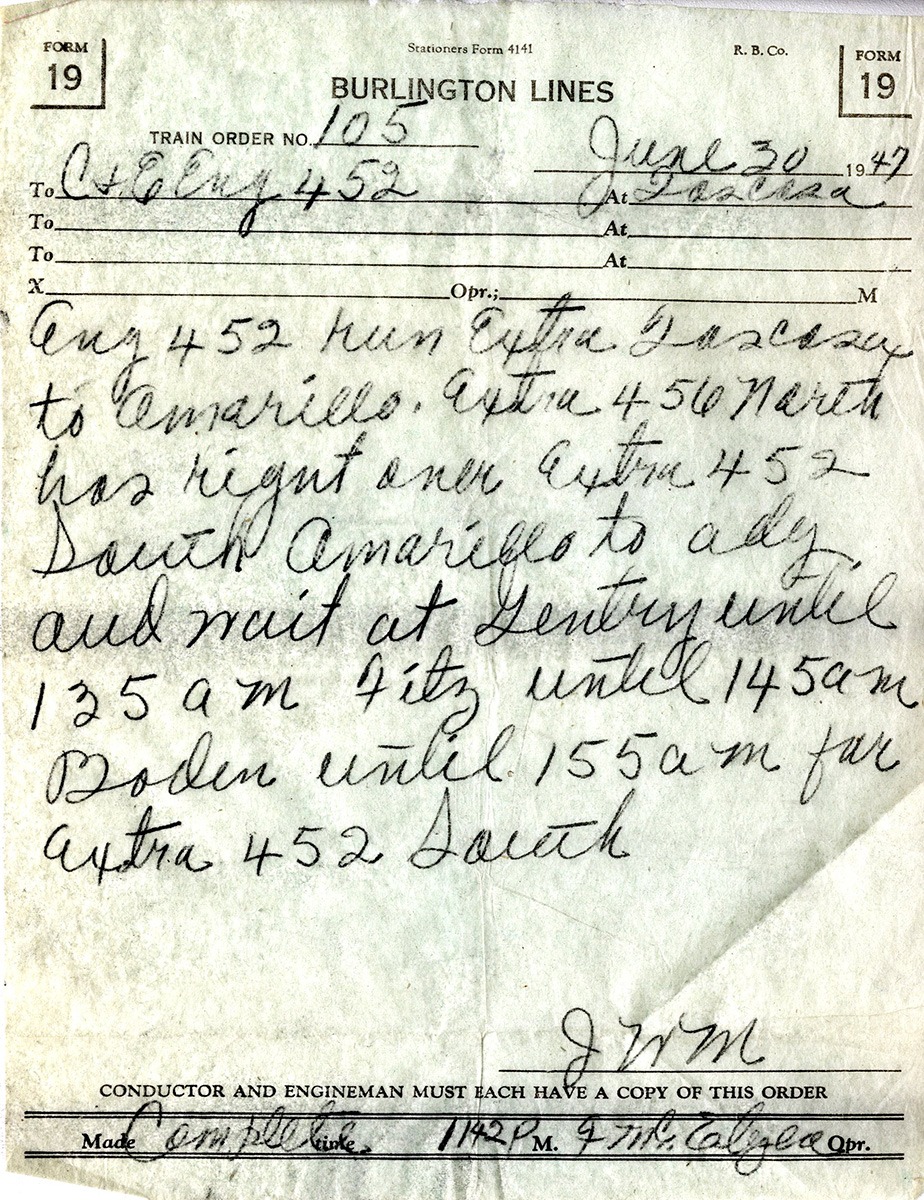 FORM 19
Stationers Form 4141
R. B. Co.
FORM 19
BURLINGTON LINES
TRAIN ORDER NO. 105
June 30 1947
To C & E Eng 452 At Tascosa
To At
To At
X Opr.; M
Eng 452 run Extra Tascosa
to Amarillo. Extra 456 North
has right over Extra 452
South Amarillo to Ady
and wait at Gentry until
135 am Fitz until 145 am
Boden until 155 am for
Extra 452 South
JWM
CONDUCTOR AND ENGINEMAN MUST EACH HAVE A COPY OF THIS ORDER
Made Complete time 1142 P M. Opr.